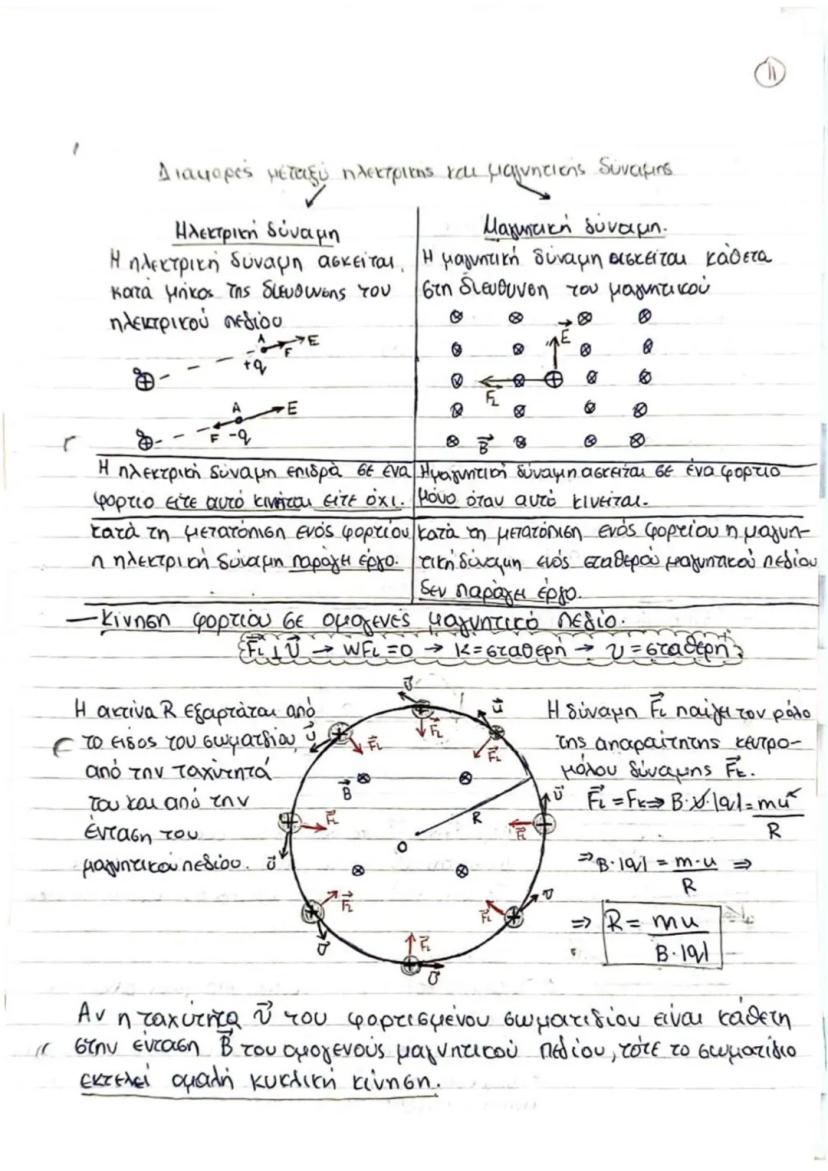 11
Διαφορές μεταξύ ηλεκτρικής και μαγνητικής δύναμης
Ηλεκτρική δύναμη
Η ηλεκτρική δύναμη ασκείται
κατά μήκος της διεύθυνσης του
ηλεκτρικού πεδίου
A E
F
+q
A E
F -q
Μαγνητική δύναμη.
Η μαγνητική δύναμη ασκείται κάθετα
στη διεύθυνση του μαγνητικού
E
FL
B
Η ηλεκτρική δύναμη επιδρά σε ένα
φορτίο είτε αυτό κινείται είτε όχι.
Η μαγνητική δύναμη ασκείται σε ένα φορτίο
μόνο όταν αυτό κινείται.
κατά τη μετατόπιση ενός φορτίου
η ηλεκτρική δύναμη παράγει έργο.
κατά τη μετατόπιση ενός φορτίου η μαγνη-
τική δύναμη ενός σταθερού μαγνητικού πεδίου
δεν παράγει έργο.
— Κίνηση φορτίου σε ομογενές μαγνητικό πεδίο.
FL ⊥ υ → WFL = 0 → K = σταθερη → υ = σταθερη
Η ακτίνα R εξαρτάται από
το είδος του σωματδίου,
από την ταχύτητά
του και από την
ένταση του
μαγνητικού πεδίου.
υ
FL
υ
FL
υ
FL
υ
FL
υ
FL
υ
FL
υ
FL
υ
FL
B
R
O
Η δύναμη FL παίζει τον ρόλο
της απαραίτητης κεντρο-
μόλου δύναμης Fκ.
FL = Fκ ⇒ B·υ·|q| = mu²/R
⇒ B·|q| = m·u/R ⇒
⇒ R = mu/B·|q|
Αν η ταχύτητα υ του φορτισμένου σωματιδίου είναι κάθετη
στην ένταση B του ομογενούς μαγνητικού πεδίου, τότε το σωματίδιο
εκτελεί ομαλή κυκλική κίνηση.